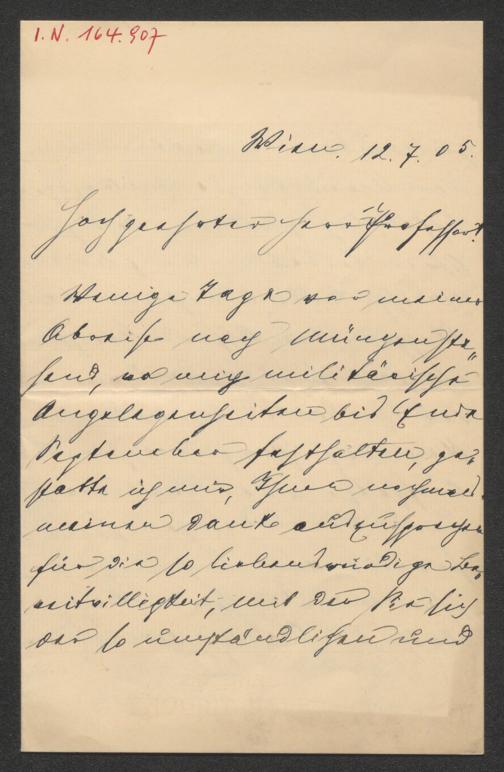 I.N. 164.907
Wien. 12.7.05.
Hochgeehrter Herr Professor!
Wenige Tage vor meiner
Abreise nach
wo mich militärische
Angelegenheiten bis Ende
September festhalten, ge-
statte ich mir, Ihnen nochmals
meinen Dank auszusprechen
für die so liebenswürdige Be-
reitwilligkeit, mit der Sie sich
der so umständlichen und